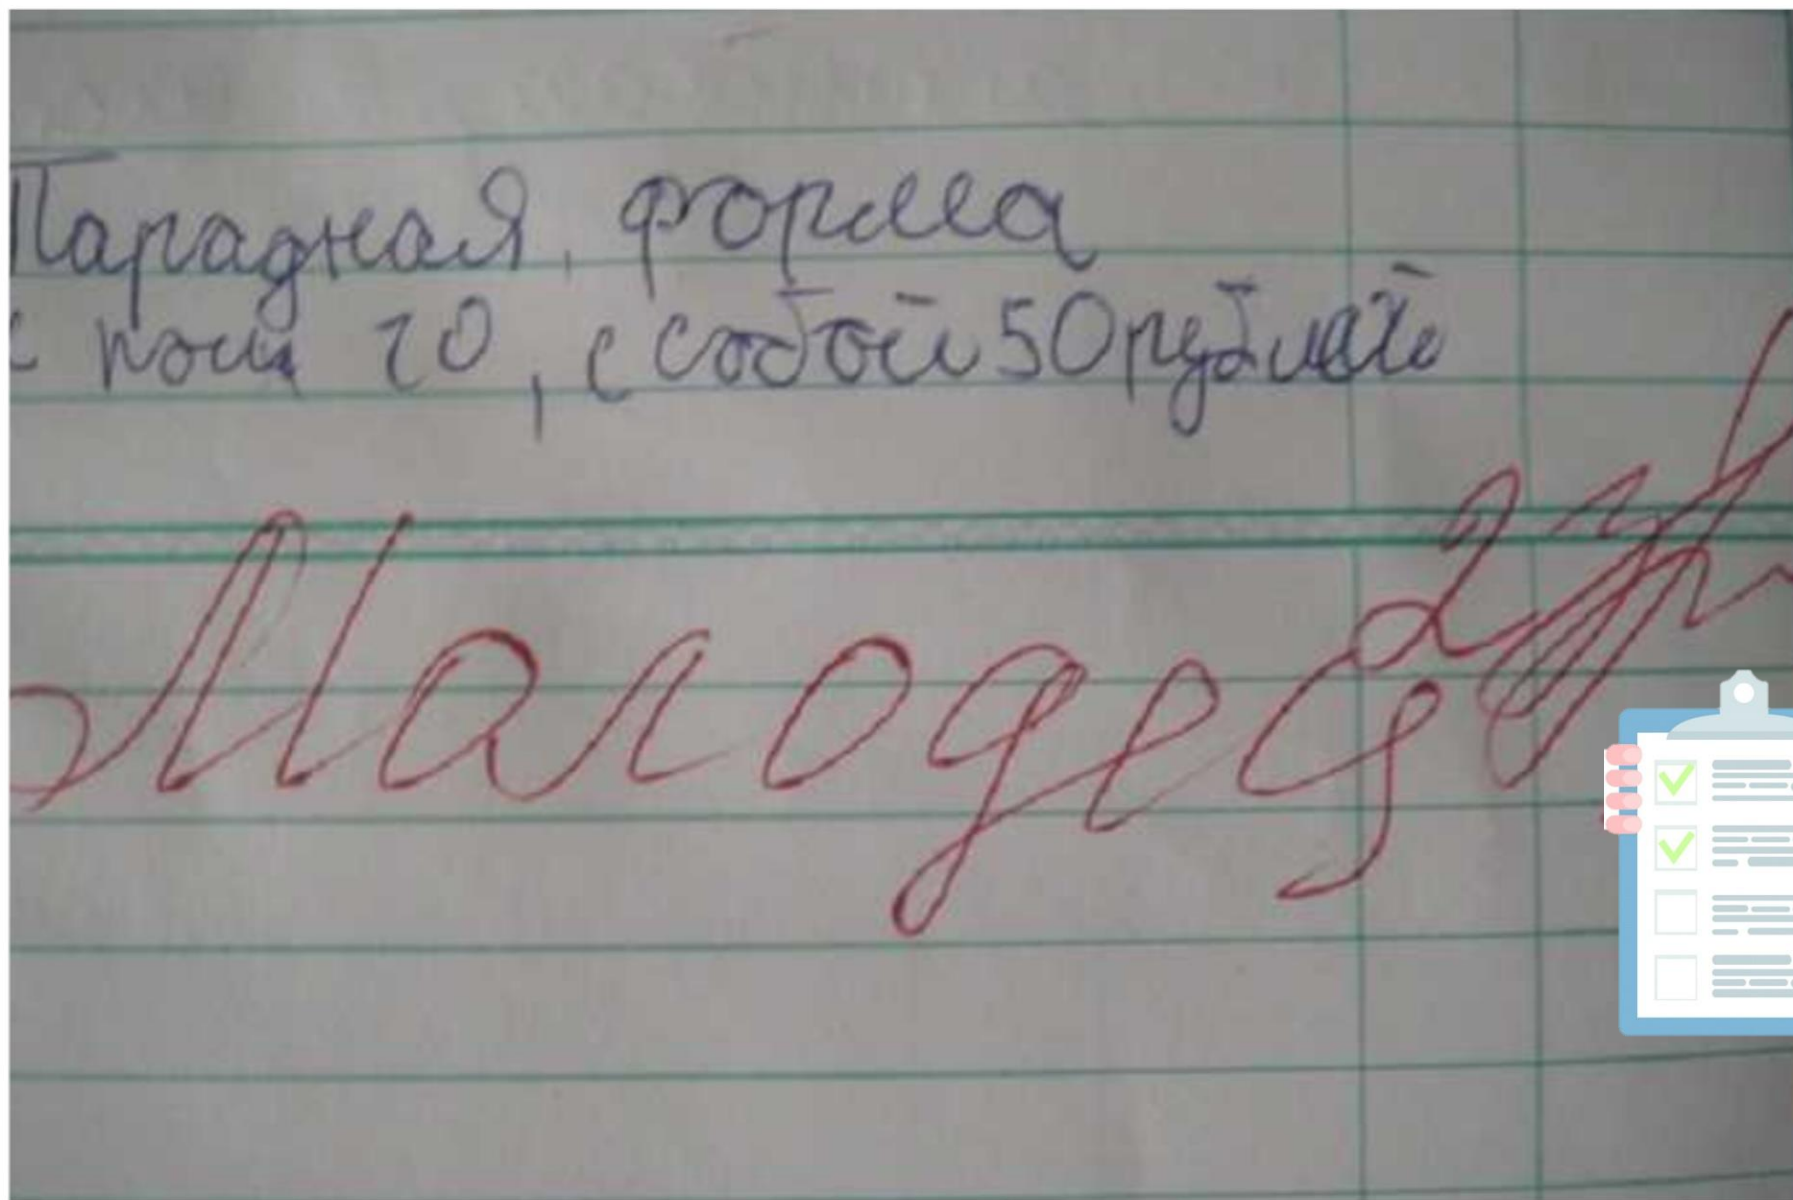 Парадная форма
с собой 50 рублей
Малодец